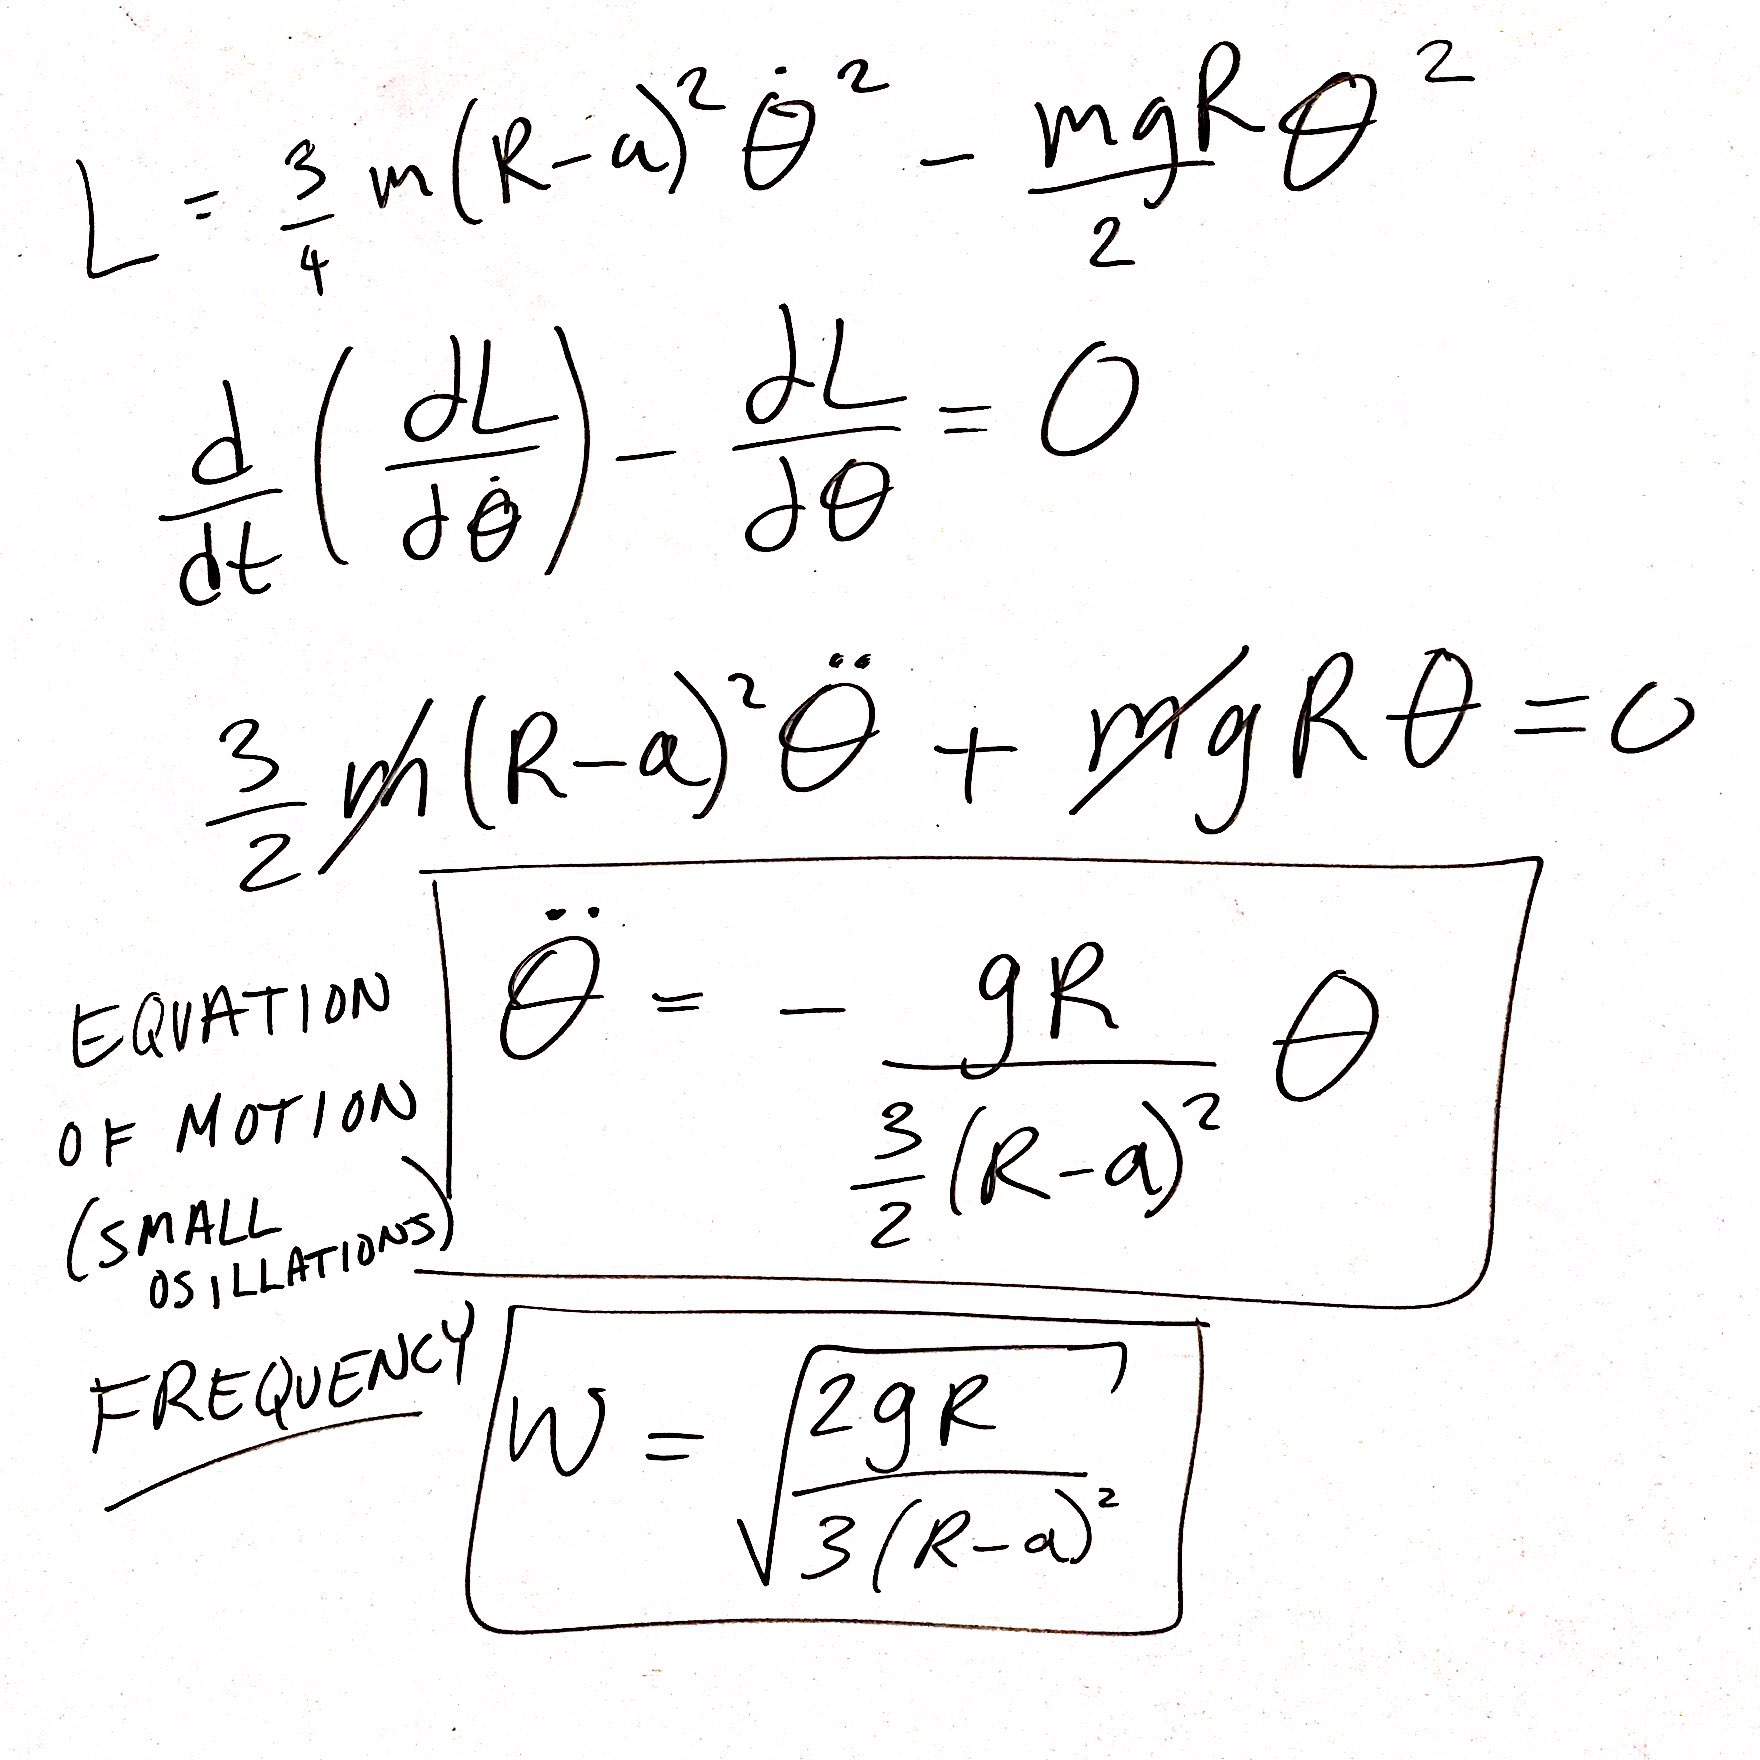 L = 3/4 m(R-a)² θ̇² - mgR/2 θ²
d/dt (dL/dθ̇) - dL/dθ = 0
3/2 m(R-a)² θ̈ + mgRθ = 0
EQUATION OF MOTION (SMALL OSILLATIONS)
θ̈ = - gR / 3/2 (R-a)² θ
FREQUENCY
W = √(2gR / 3(R-a)²)